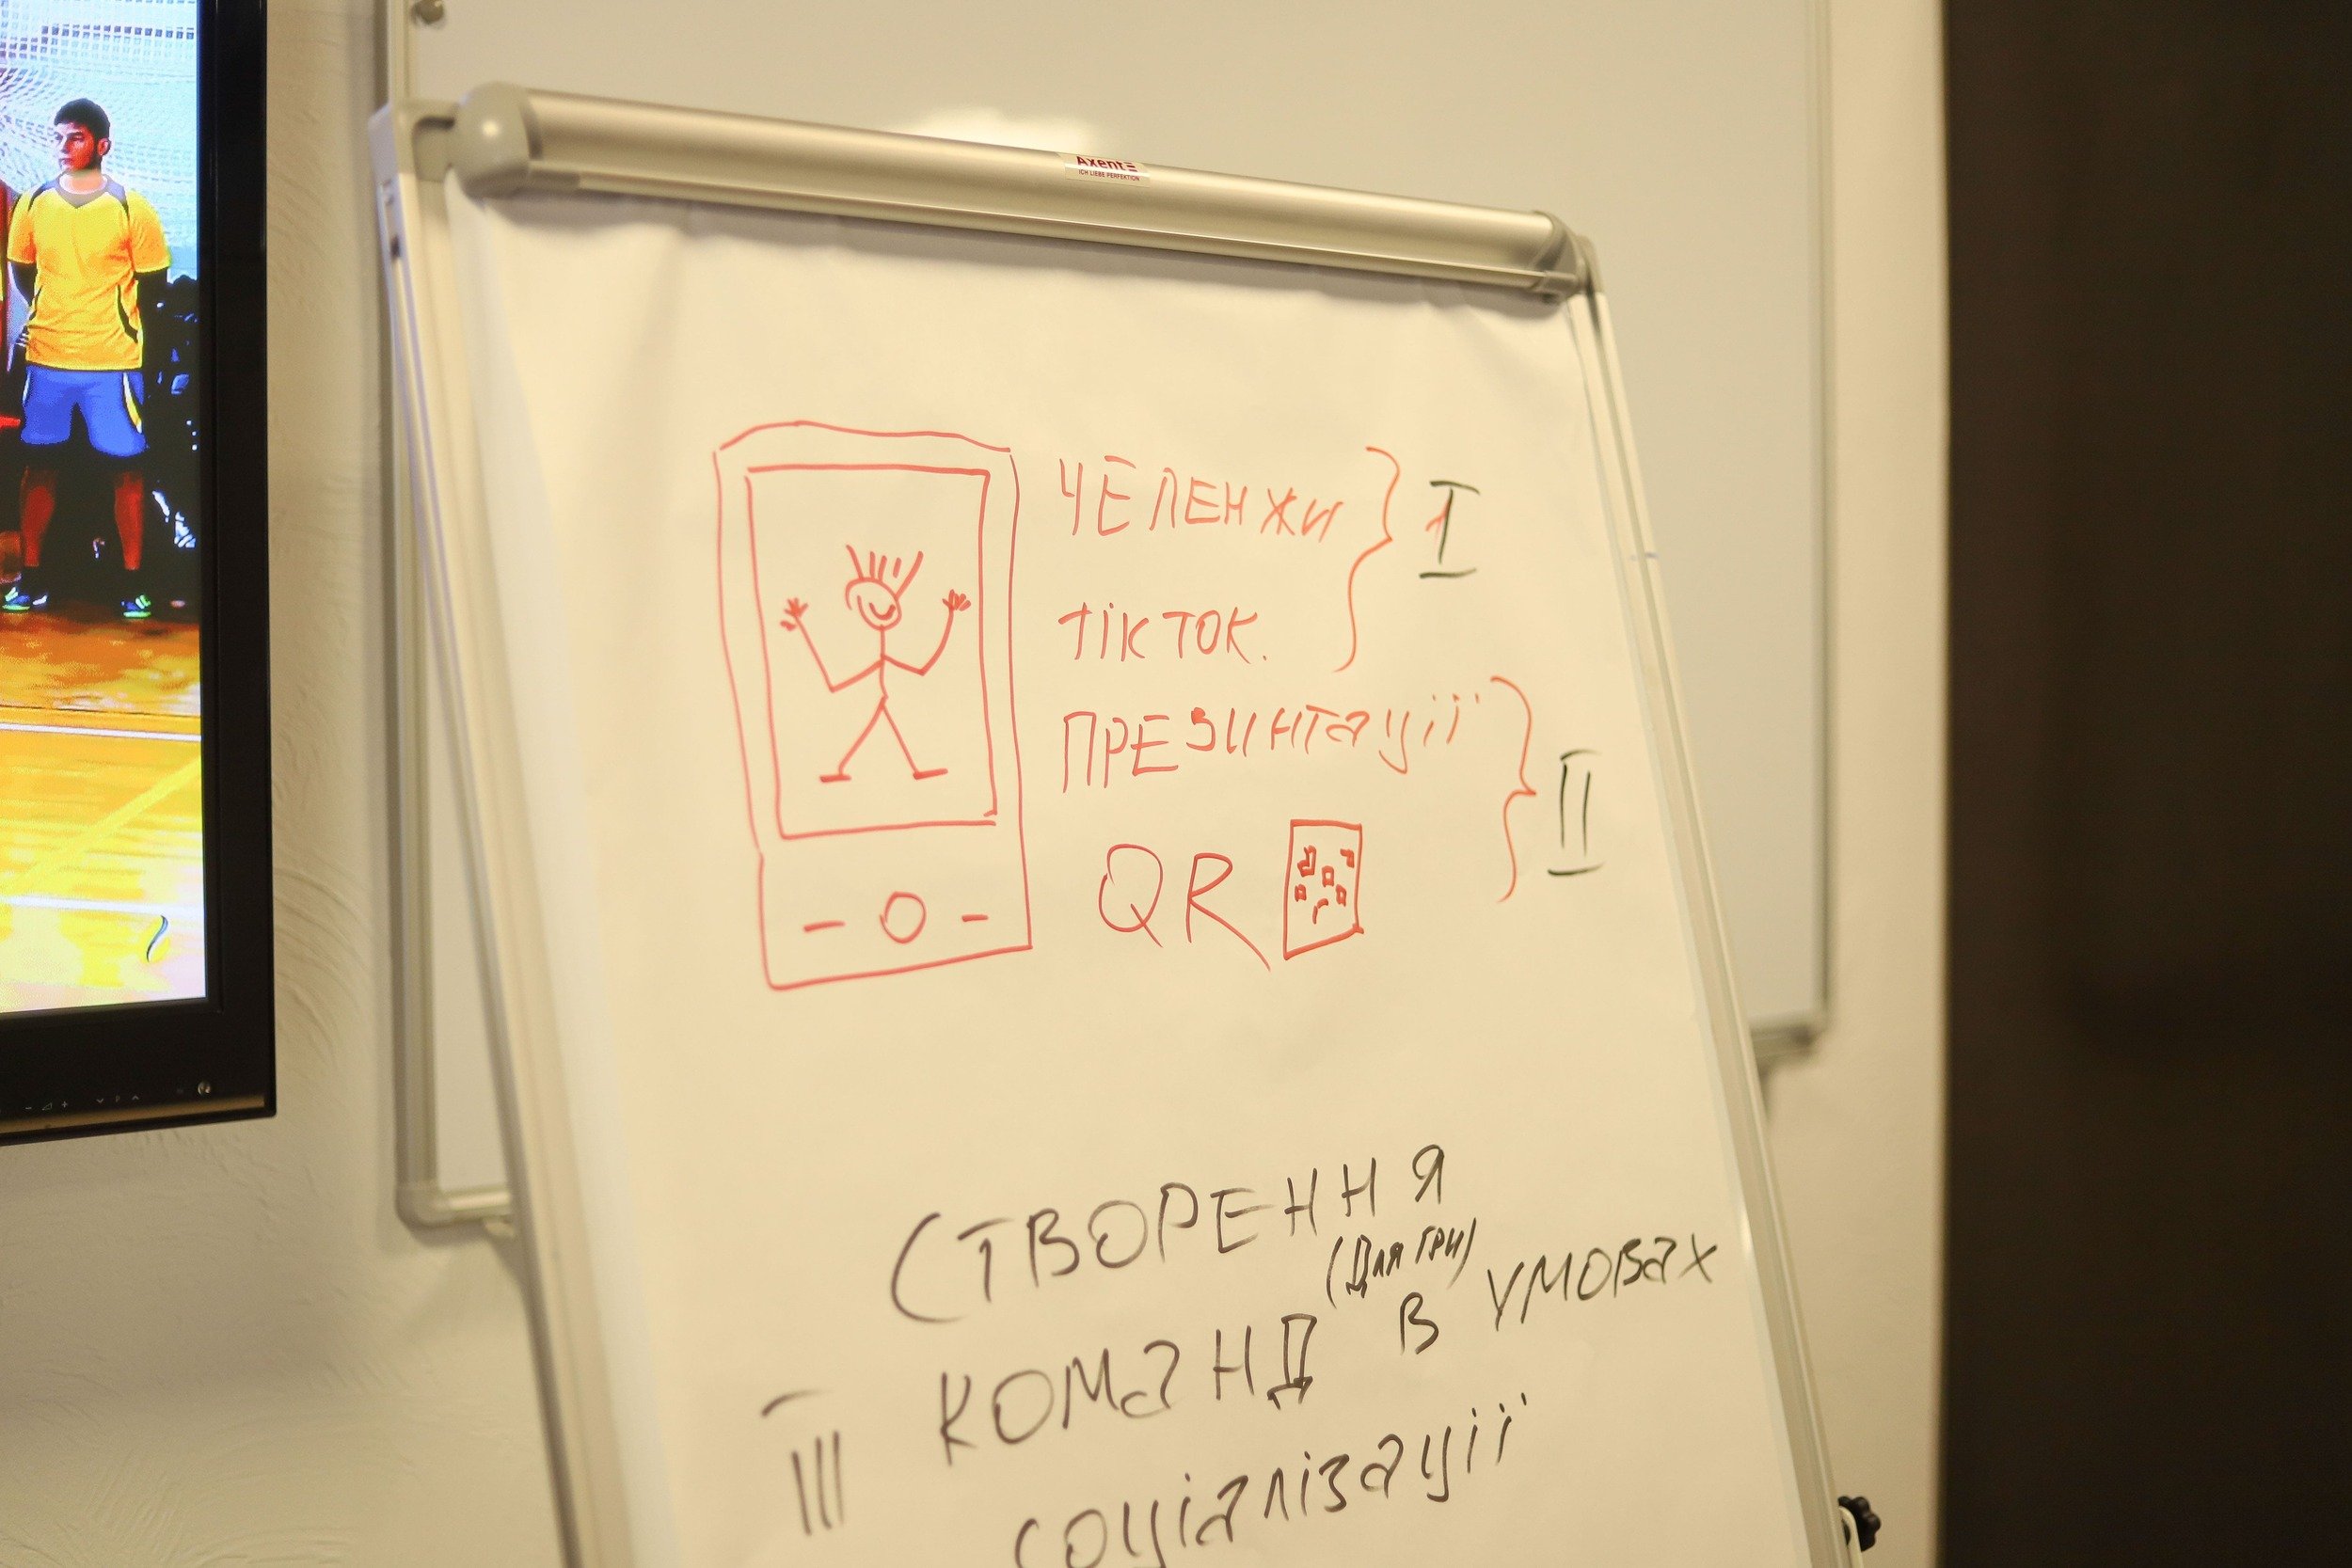 Axent
ICH LIEBE PERFEKTION
ЧЕЛЕНЖИ
I
тікток.
ПРЕЗИНТаціїї
QR
II
СТВОРЕННЯ
(Для ГРИ)
КОМаНД В УМОВах
III
соціалізації